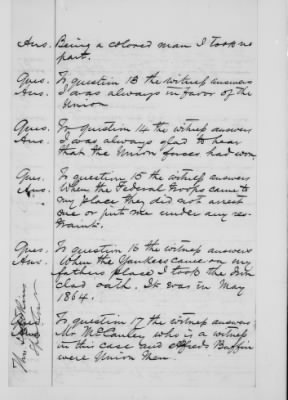 Ans. Being a colored man I took no
part.
Ques. To question 13 the witness answers
Ans. I was always in favor of the
Union
Ques. To question 14 the witness answers
Ans. I was always glad to hear
that the Union forces had won.
Ques. To question 15 the witness answers
Ans. When the Federal troops came to
my place they did not arrest
me or put me under any res-
traint.
Ques. To question 16 the witness answers
Ans. When the Yankees came on my
fathers place I took the Iron
clad oath. It was in May
1864.
Ques. To question 17 the witness answers
Ans. Mr McCauley who is a witness
in this case and Alfred
were Union Men.